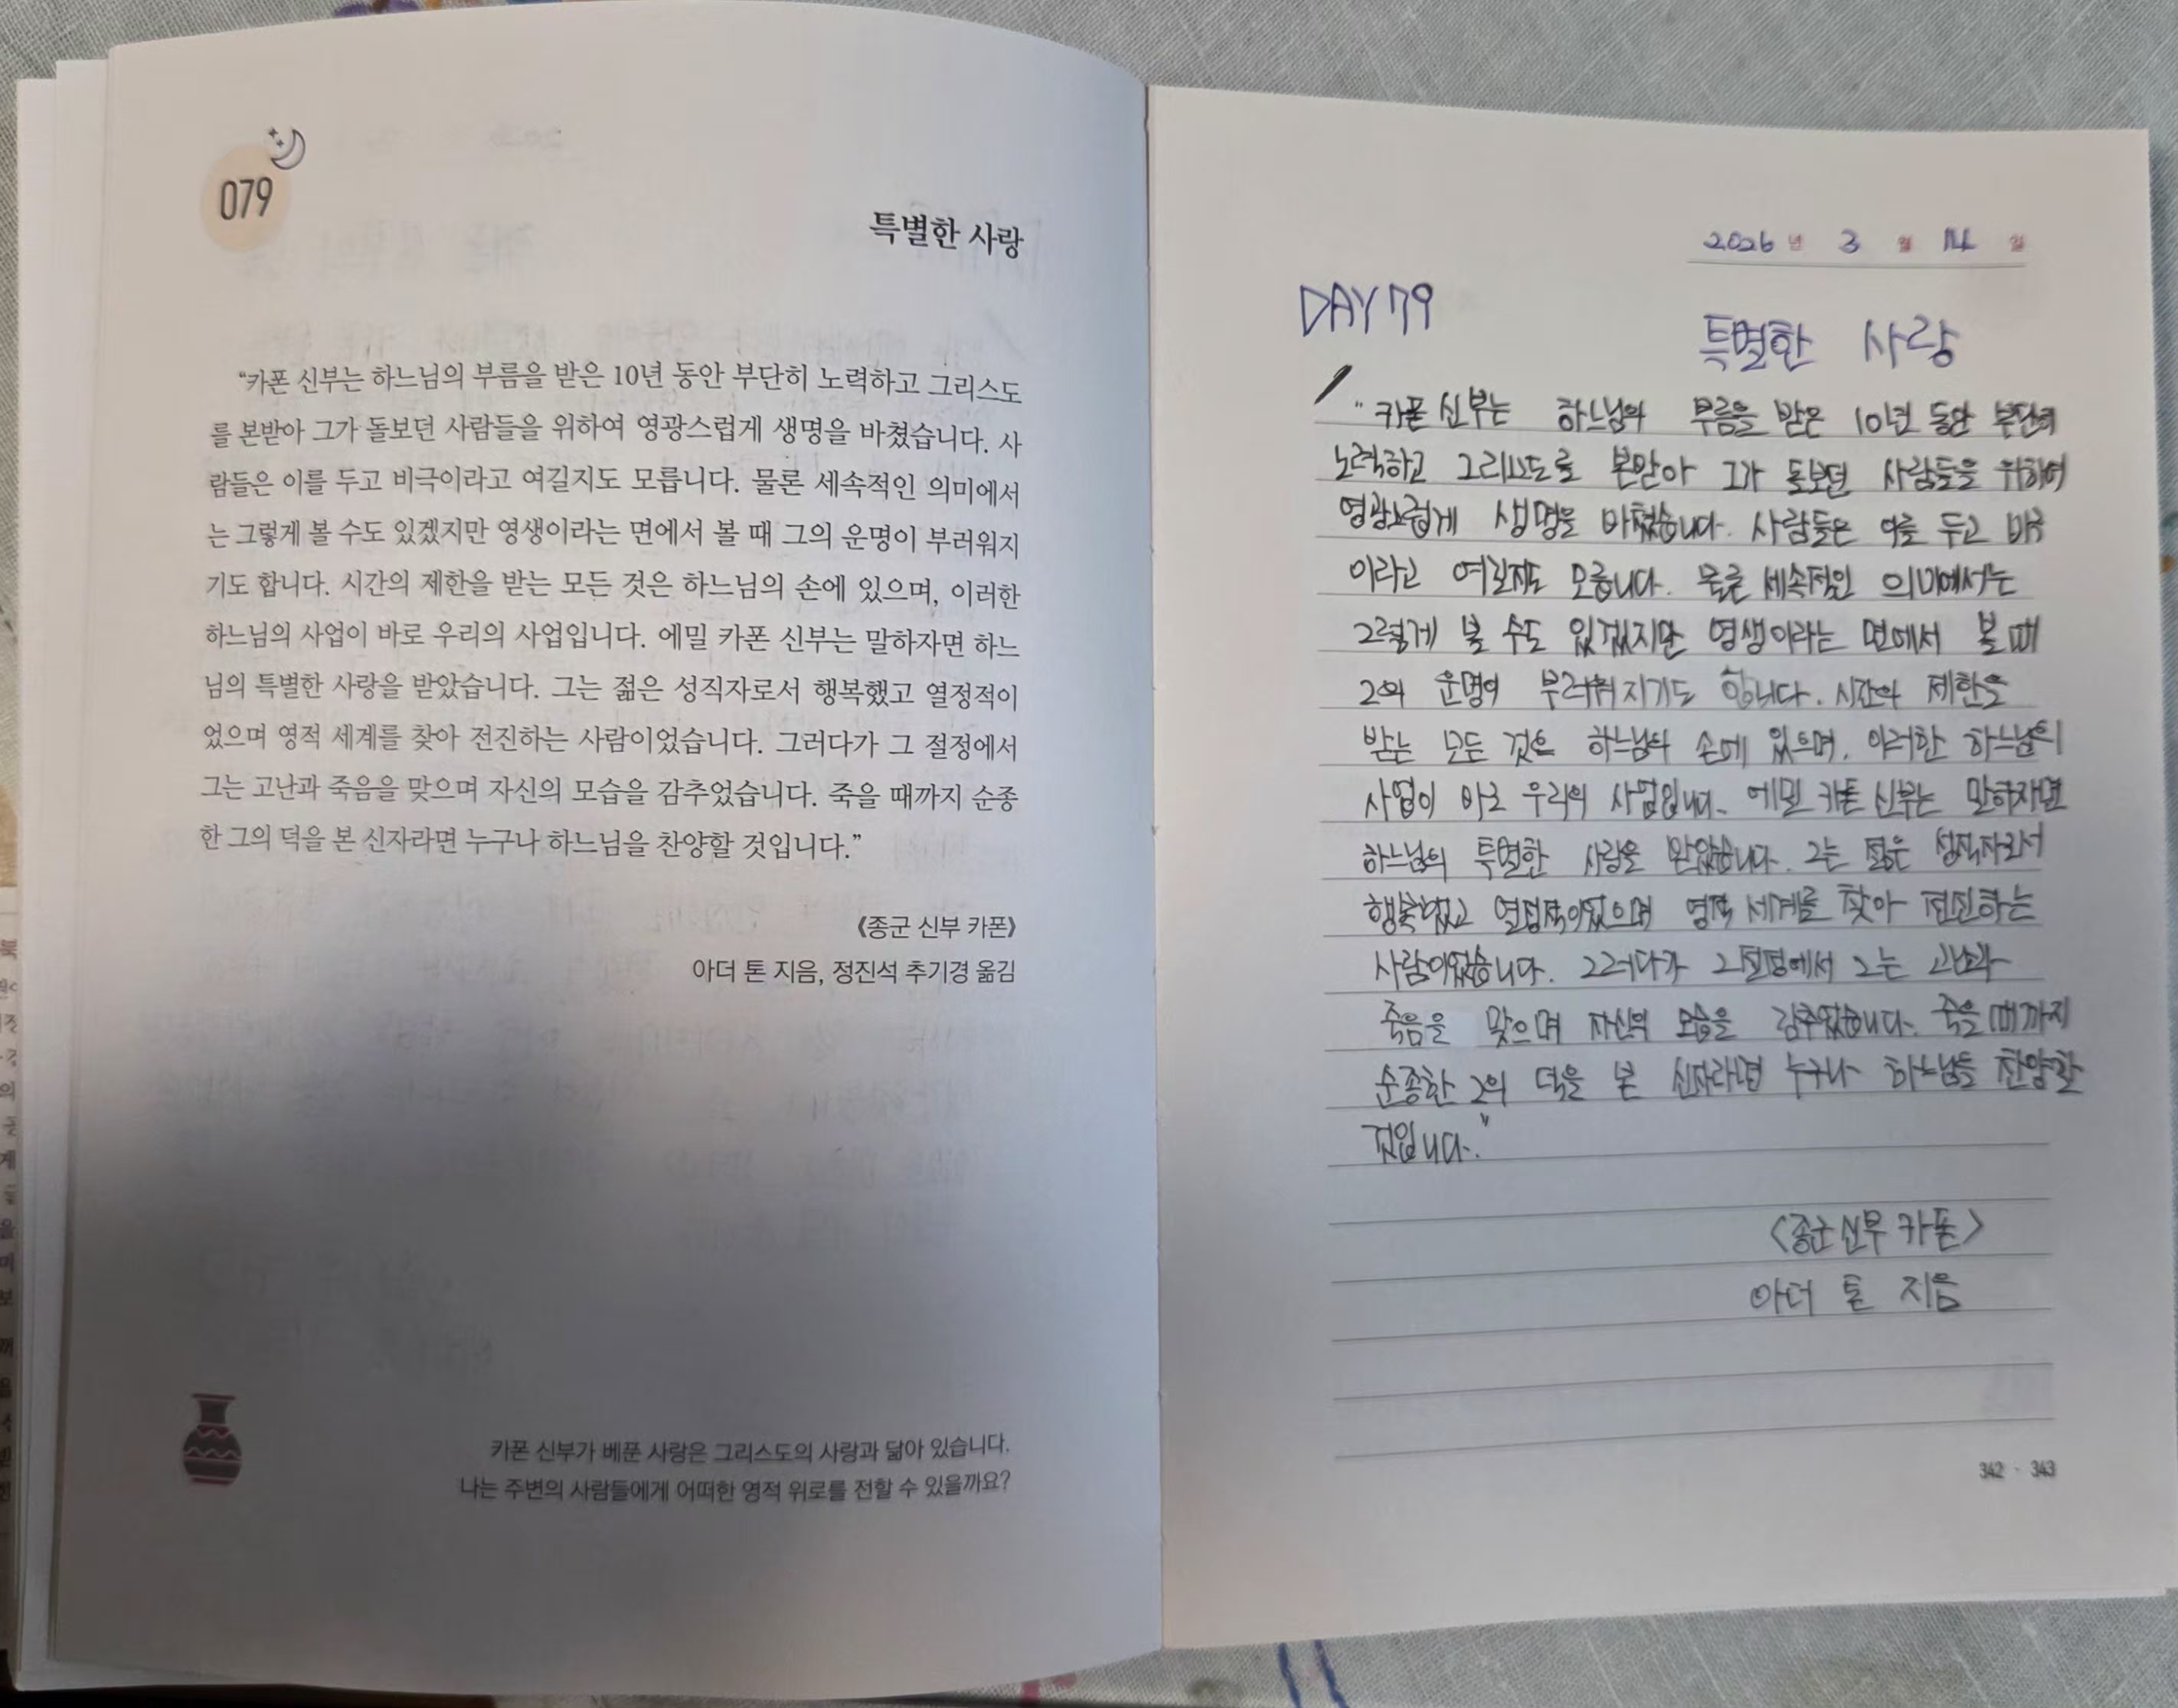 079
특별한 사랑
“카폰 신부는 하느님의 부름을 받은 10년 동안 부단히 노력하고 그리스도
를 본받아 그가 돌보던 사람들을 위하여 영광스럽게 생명을 바쳤습니다. 사
람들은 이를 두고 비극이라고 여길지도 모릅니다. 물론 세속적인 의미에서
는 그렇게 볼 수도 있겠지만 영생이라는 면에서 볼 때 그의 운명이 부러워지
기도 합니다. 시간의 제한을 받는 모든 것은 하느님의 손에 있으며, 이러한
하느님의 사업이 바로 우리의 사업입니다. 에밀 카폰 신부는 말하자면 하느
님의 특별한 사랑을 받았습니다. 그는 젊은 성직자로서 행복했고 열정적이
었으며 영적 세계를 찾아 전진하는 사람이었습니다. 그러다가 그 절정에서
그는 고난과 죽음을 맞으며 자신의 모습을 감추었습니다. 죽을 때까지 순종
한 그의 덕을 본 신자라면 누구나 하느님을 찬양할 것입니다.”
《종군 신부 카폰》
아더 톤 지음, 정진석 추기경 옮김
카폰 신부가 베푼 사랑은 그리스도의 사랑과 닮아 있습니다.
나는 주변의 사람들에게 어떠한 영적 위로를 전할 수 있을까요?
2026년 3월 14일
DAY 79
특별한 사랑
"카폰 신부는 하느님의 부름을 받은 10년 동안 부단히
노력하고 그리스도를 본받아 그가 돌보던 사람들을 위하여
영광스럽게 생명을 바쳤습니다. 사람들은 이를 두고 비극
이라고 여길지도 모릅니다. 물론 세속적인 의미에서는
그렇게 볼 수도 있겠지만 영생이라는 면에서 볼 때
그의 운명이 부러워지기도 합니다. 시간의 제한을
받는 모든 것은 하느님의 손에 있으며, 이러한 하느님의
사업이 바로 우리의 사업입니다. 에밀 카폰 신부는 말하자면
하느님의 특별한 사랑을 받았습니다. 그는 젊은 성직자로서
행복했고 열정적이었으며 영적 세계를 찾아 전진하는
사람이었습니다. 그러다가 그 절정에서 그는 고난과
죽음을 맞으며 자신의 모습을 감추었습니다. 죽을 때까지
순종한 그의 덕을 본 신자라면 누구나 하느님을 찬양할
것입니다."
<종군 신부 카폰>
아더 톤 지음
342 · 343